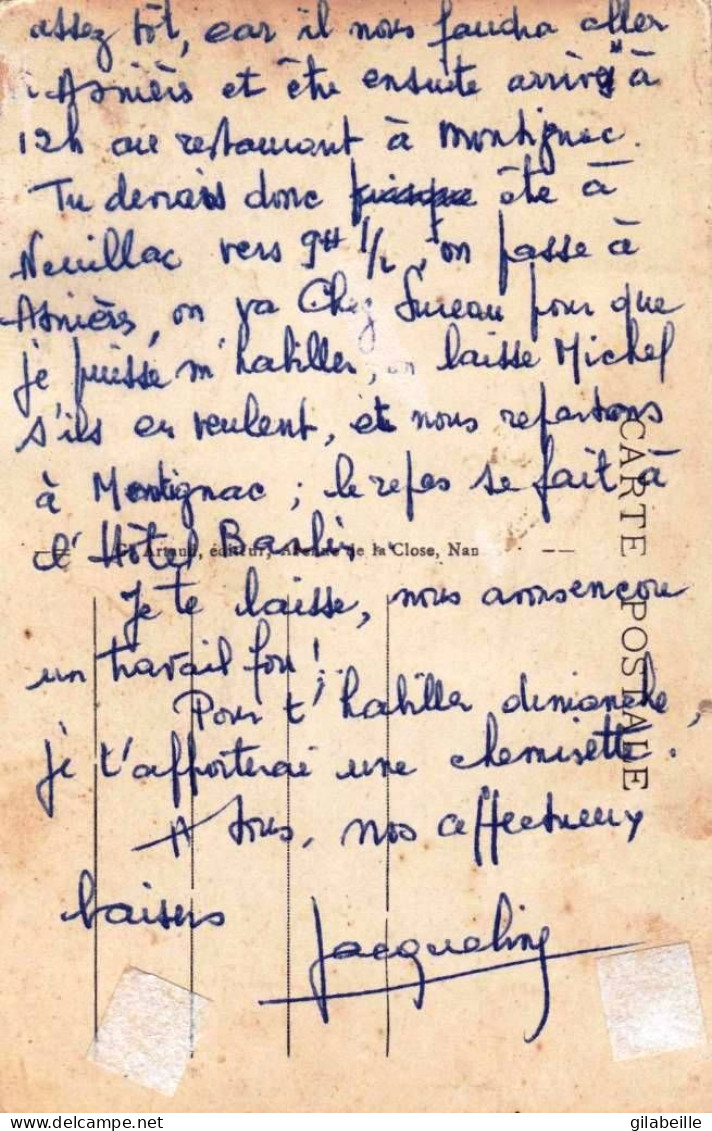 assez tôt, car il nous faudra aller
à Asnièrs et être ensuite arrivés à
12h au restaurant à Montignac.
Tu devrais donc être à
Neuillac vers 9H 1/2, on passe à
Asnièrs, on va Chez Sureau pour que
je puisse m'habiller, on laisse Michel
s'ils en veulent, et nous repartons
à Montignac ; le repas se fait à
l'Hôtel
Artaud, éditeur, Avenue de la Close, Nan
Je te laisse, nous avons encore
un travail fou !
Pour t'habiller dimanche,
je t'apporterai une chemisette.
A tous, nos affectueux
baisers
Jacqueline
CARTE POSTALE
Delcampe.net
gilabeille